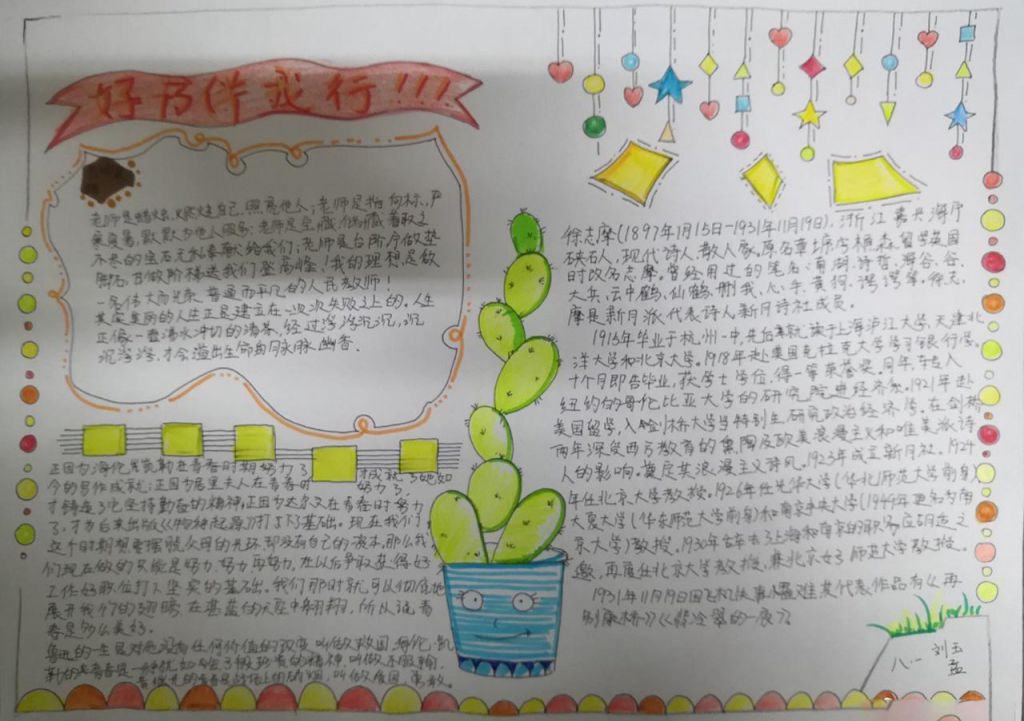 好书伴我行!!!
老师是蜡烛,燃烧自己,照亮他人;老师是指向标,严
默默为他人服务;老师是宝藏,储藏着取之
不尽的宝石无私奉献给我们;老师是台阶,今做垫
脚石,日做阶梯送我们登高峰!我的理想是做
一名伟大而光荣,普通而平凡的人民教师!
其实美丽的人生正是建立在一次次失败之上的,人生
正像一壶沸水冲切的清茶,经过浮浮沉沉,沉
沉浮浮,才会溢出生命的脉脉幽香.
正因为海伦凯勒在青春时期努力了 才成就了她如
今的写作成就;正因为居里夫人在青春时 努力了,
才铸造了它坚持勤奋的精神,正因为达尔文在青春时努力
了,才为后来出版《物种起源》打下了基础。现在我们
这个时期想要摆脱父母的光环,却没有自己的资本,那么我
们现在做的只能是努力,努力再努力,在以后争取获得好
工作好职位打下坚实的基础。我们那时就可以彻底地
展开我们的翅膀,在湛蓝的天空中翱翔,所以说,青
春是多么美好。
徐志摩(1897年1月15日-1931年11月19日),浙江嘉兴海宁
硖石人,现代诗人、散文家。原名章垿,字槱森,留学英国
时改名志摩。曾经用过的笔名:南湖、诗哲、海谷、谷、
大兵、云中鹤、仙鹤、删我、心手、黄狗、谔谔等。徐志
摩是新月派代表诗人,新月诗社成员。
1915年毕业于杭州一中,先后就读于上海沪江大学、天津北
洋大学和北京大学。1918年赴美国克拉克大学学习银行学。
十个月即告毕业,获学士学位,得一等荣誉奖。同年,转入
纽约的哥伦比亚大学的研究院,进经济系。1921年赴
英国留学,入剑桥大学当特别生,研究政治经济学。在剑桥
两年深受西方教育的熏陶及欧美浪漫主义和唯美派诗
人的影响,奠定其浪漫主义诗风。1923年成立新月社。1924
年任北京大学教授。1926年任光华大学(华北师范大学前身)
大夏大学(华东师范大学前身)和南京中央大学(1949年更名为南
京大学)教授。1930年辞去了上海和南京的职务,应胡适之
邀,再度任北京大学教授,兼北京女子师范大学教授。
1931年11月19日因飞机失事罹难。其代表作品有《再
别康桥》《翡冷翠的一夜》
八.一 刘玉